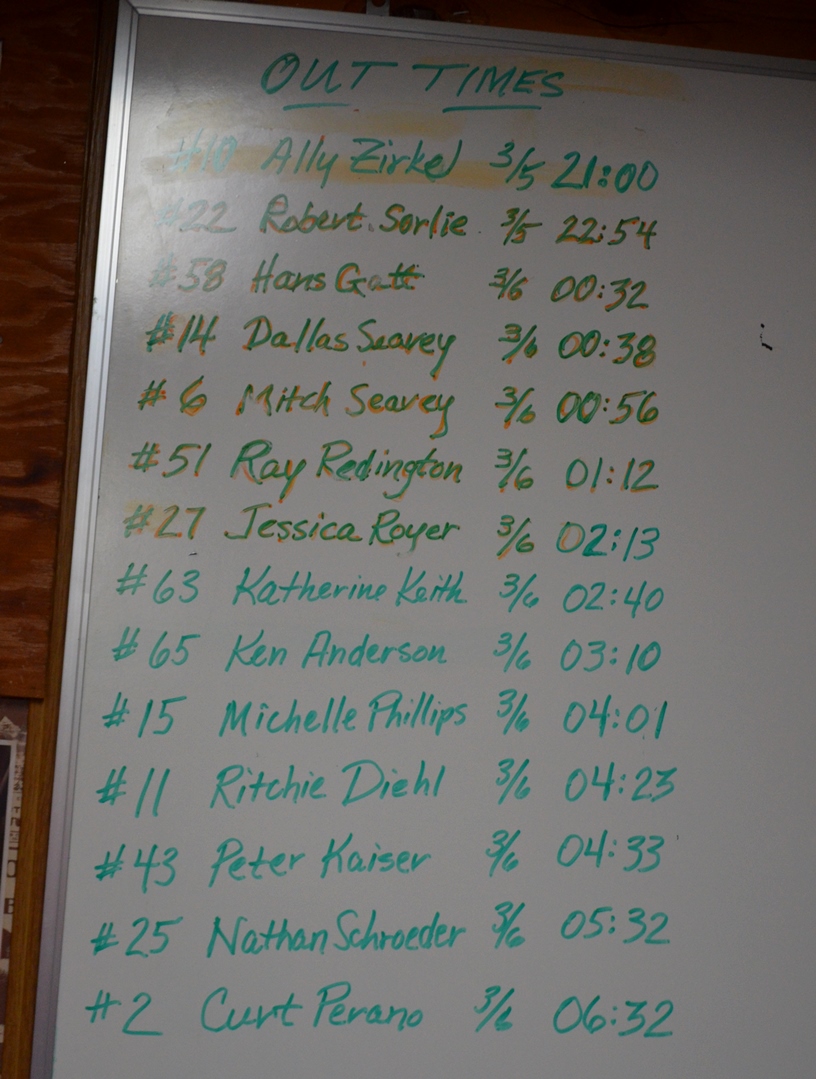 OUT TIMES
#10 Ally Zirkel 3/5 21:00
#22 Robert Sorlie 3/5 22:54
#58 Hans Gatt 3/6 00:32
#14 Dallas Seavey 3/6 00:38
# 6 Mitch Seavey 3/6 00:56
#51 Ray Redington 3/6 01:12
#27 Jessica Royer 3/6 02:13
#63 Katherine Keith 3/6 02:40
#65 Ken Anderson 3/6 03:10
#15 Michelle Phillips 3/6 04:01
#11 Ritchie Diehl 3/6 04:23
#43 Peter Kaiser 3/6 04:33
#25 Nathan Schroeder 3/6 05:32
#2 Curt Perano 3/6 06:32